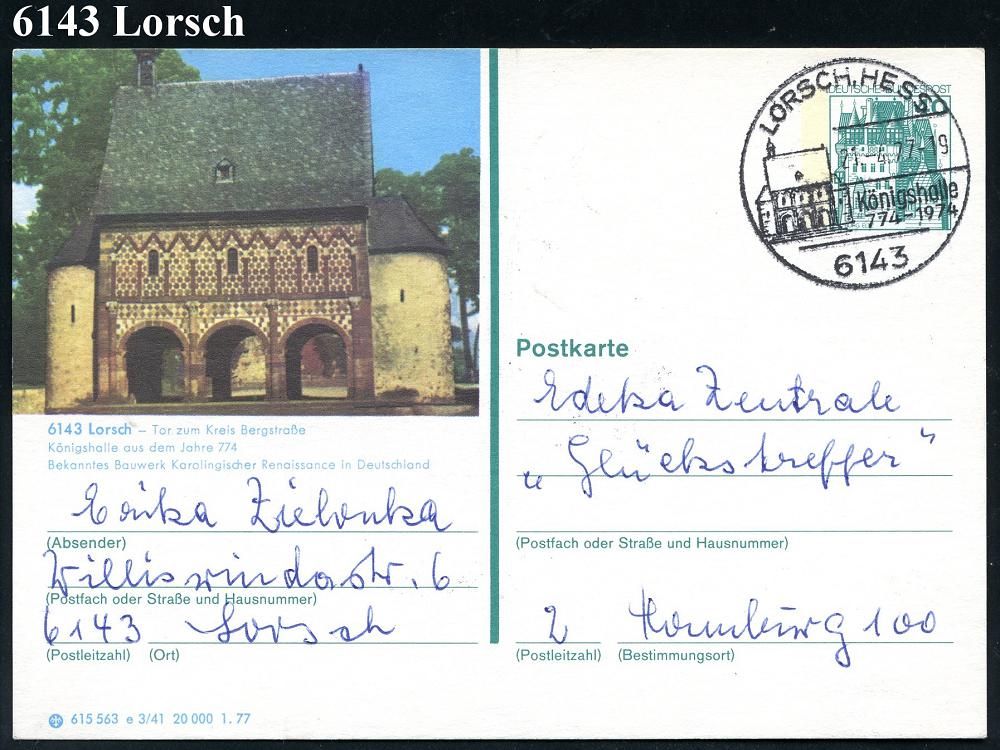 6143 Lorsch
6143 Lorsch – Tor zum Kreis Bergstraße
Königshalle aus dem Jahre 774
Bekanntes Bauwerk Karolingischer Renaissance in Deutschland
Erika Zielonka
(Absender)
Williswindastr. 6
(Postfach oder Straße und Hausnummer)
6143 Lorsch
(Postleitzahl) (Ort)
615 563 e 3/41 20 000 1. 77
LORSCH, HESS
DEUTSCHE BUNDESPOST
21-4.77-19
Königshalle
774-1974
6143
Postkarte
Edeka Zentrale
„Glückstreffer"
(Postfach oder Straße und Hausnummer)
2 Hamburg 100
(Postleitzahl) (Bestimmungsort)